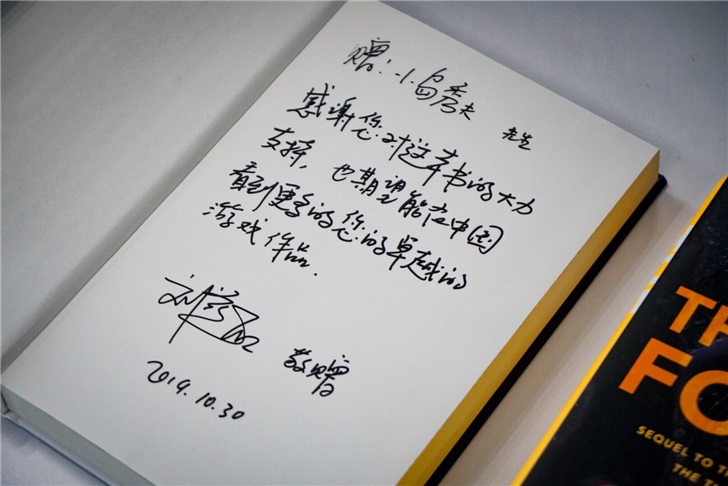 赠：小岛秀夫 先生
感谢您对这本书的大力
支持，也期望能在中国
看到更多的您的卓越的
游戏作品.
刘慈欣 敬赠
2019.10.30
TH
FO
SEQUEL TO T
THE T